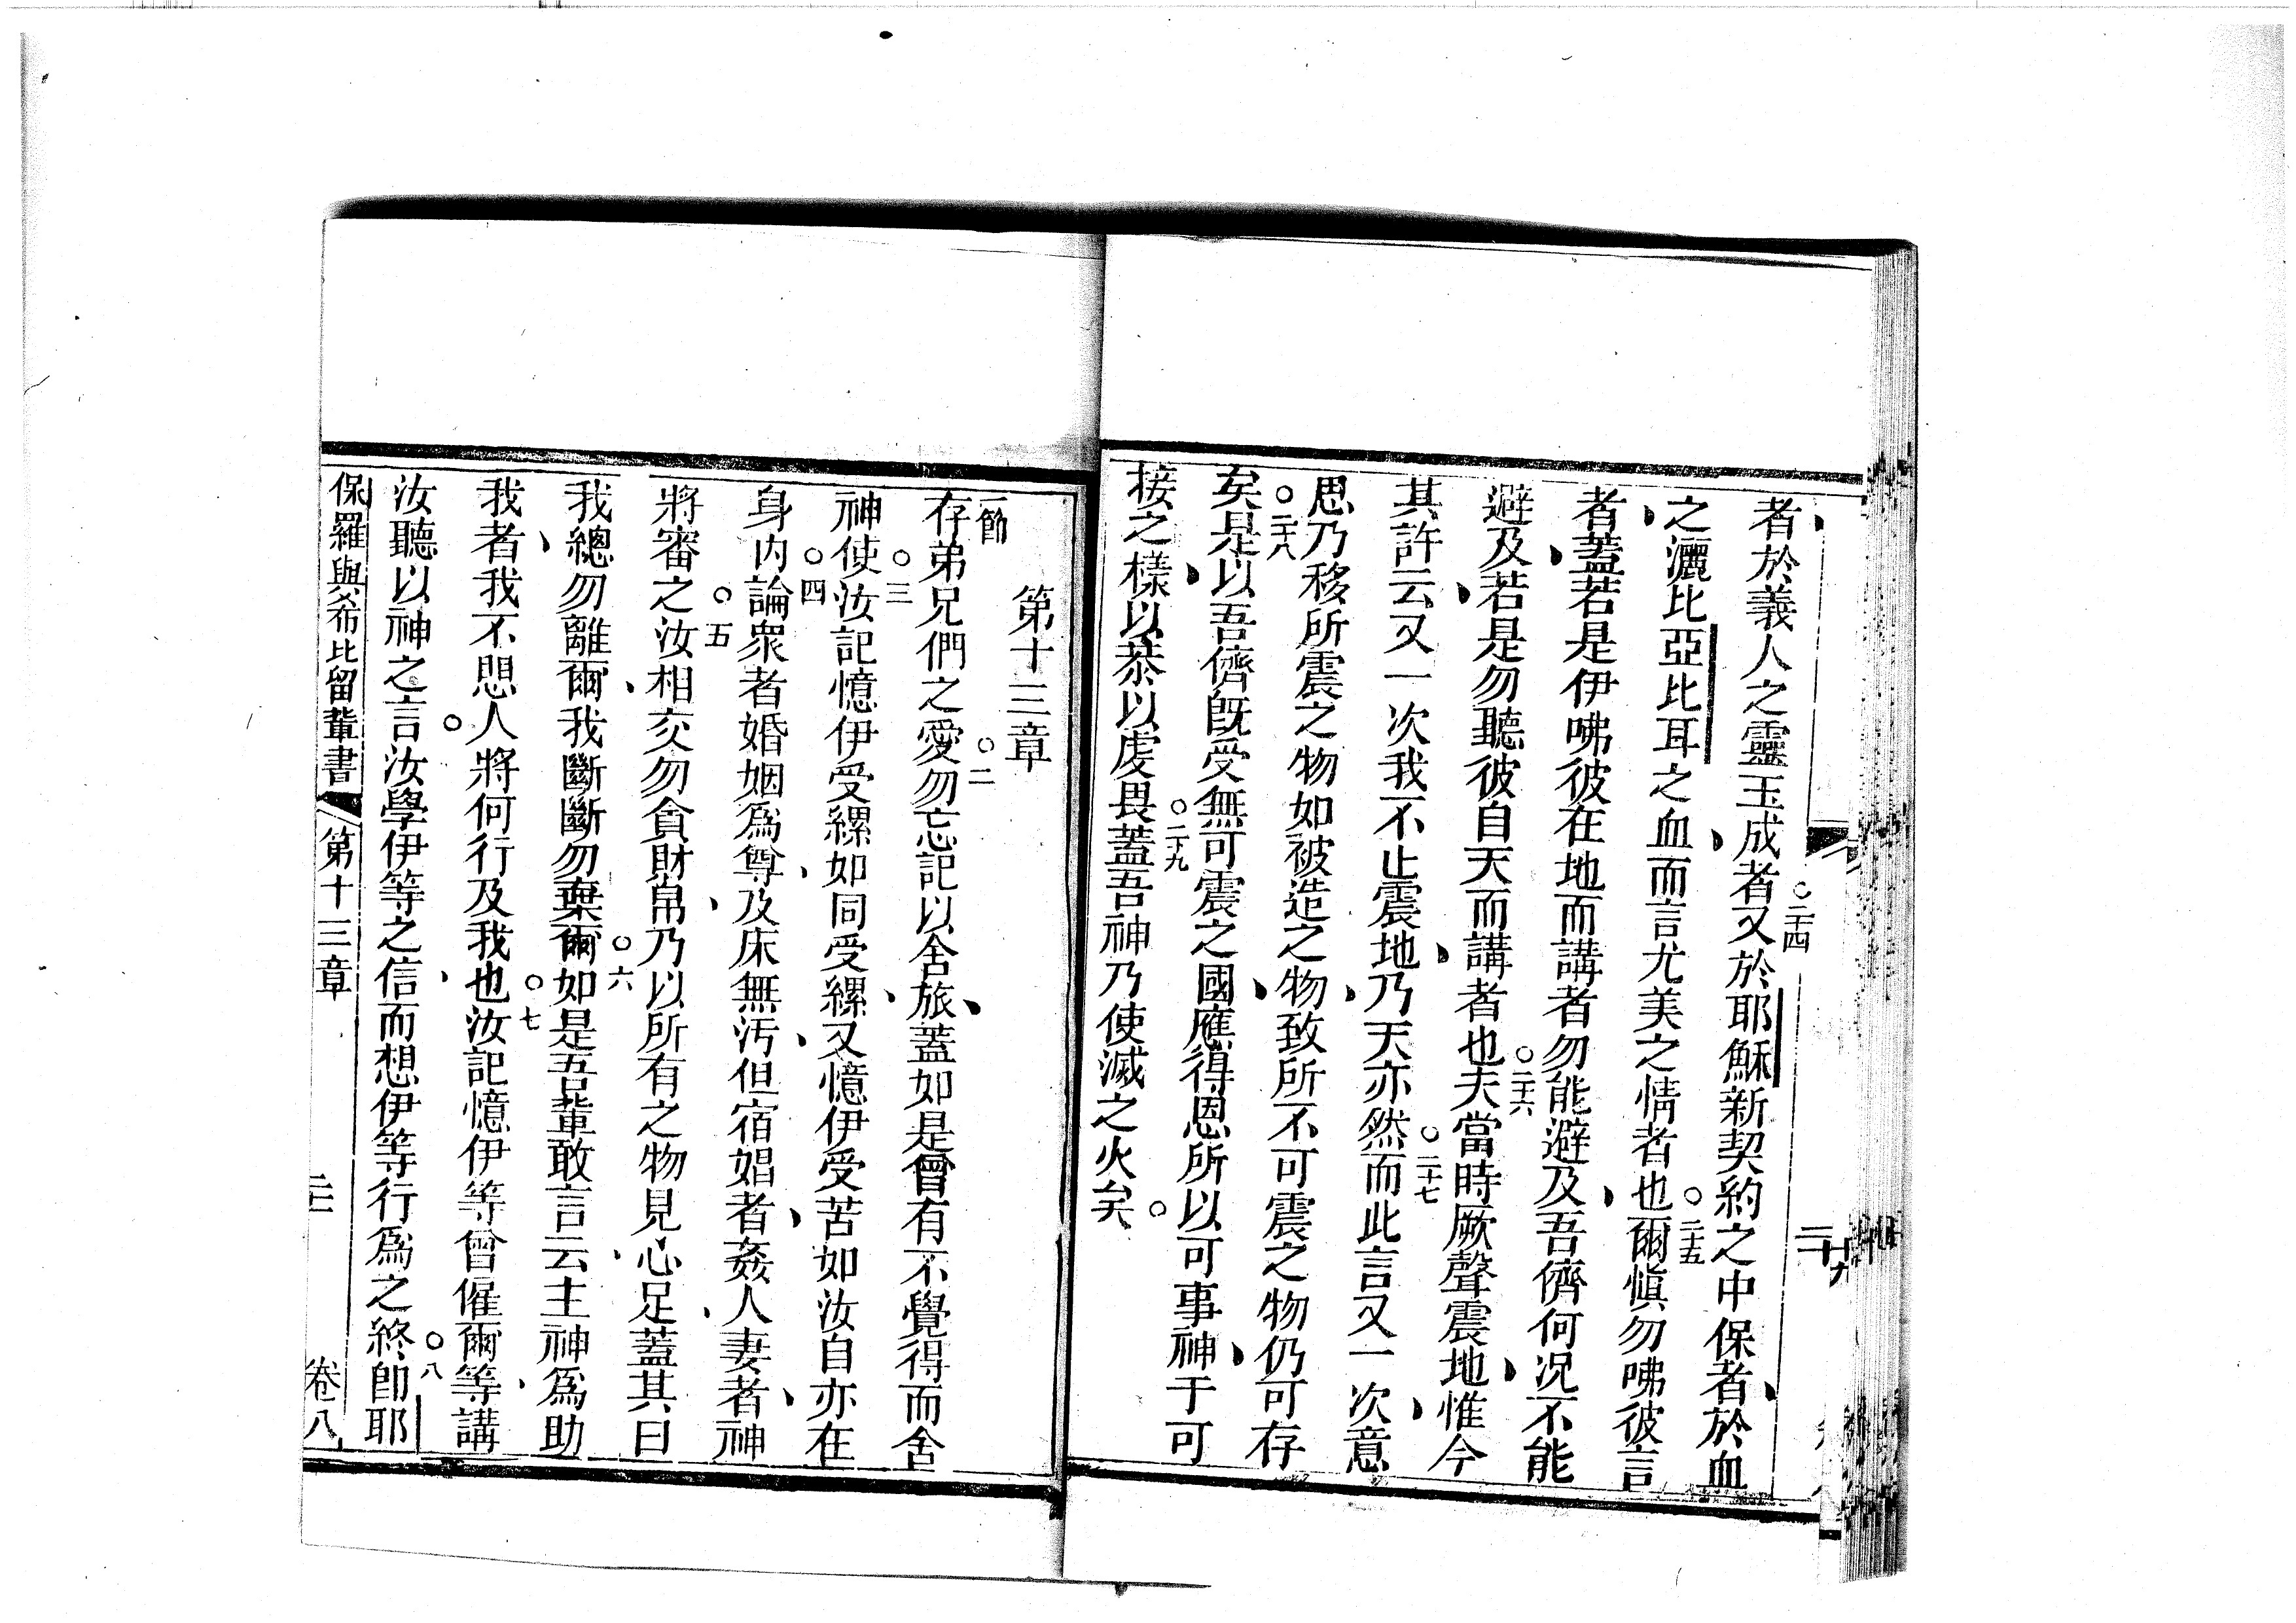 者於義人之靈玉成者又於耶穌新契約之中保者於血
二十四
之灑比亞比耳之血而言尤美之情者也爾愼勿咈彼言
二十五
者蓋若是伊咈彼在地而講者勿能避及吾儕何况不能
避及若是勿聽彼自天而講者也夫當時厥聲震地惟今
二十六
其許云又一次我不止震地乃天亦然而此言又一次意
二十七
思乃移所震之物如被造之物致所不可震之物仍可存
矣是以吾儕旣受無可震之國應得恩所以可事神于可
二十八
接之樣以恭以虔畏蓋吾神乃使滅之火矣
二十九
第十三章
一節
存弟兄們之愛勿忘記以舍旅蓋如是曾有不覺得而舍
二
神使汝記憶伊受縲如同受縲又憶伊受苦如汝自亦在
三
身内論衆者婚姻爲尊及床無汚但宿娼者姦人妻者神
四
將審之汝相交勿貪財帛乃以所有之物見心足蓋其曰
五
我總勿離爾我斷斷勿棄爾如是吾輩敢言云主神爲助
六
我者我不思人將何行及我也汝記憶伊等曾僱爾等講
七
汝聽以神之言汝學伊等之信而想伊等行爲之終卽耶
八
保羅與希比留輩書 第十三章 卷八